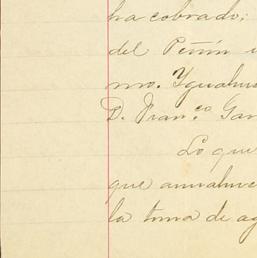 ha cobrado;
del Peñin
mro. Igualm
D. Fran.co Gar
Lo que
que
la toma de ag